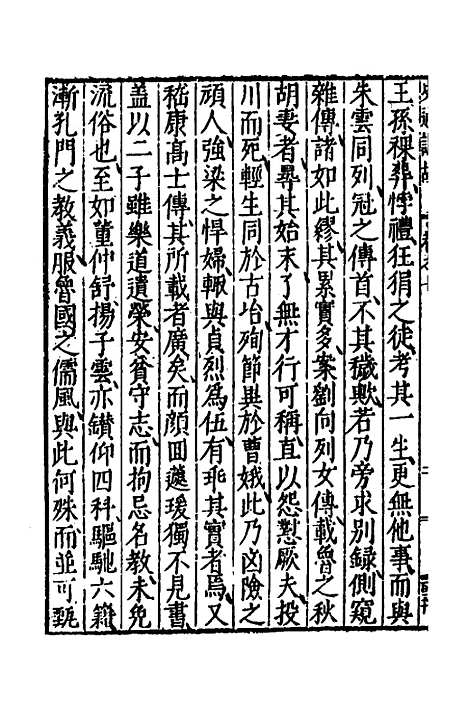 王孫裸葬悖禮狂狷之徒考其一生更無他事而與
朱雲同列冠之傳首不其穢歟若乃旁求別録側窺
雜傳諸如此繆其累實多案劉向列女傳載魯之秋
胡妻者尋其始末了無才行可稱直以怨懟厥夫投
川而死輕生同於古冶殉節異於曹娥此乃凶險之
頑人強梁之悍婦輙與貞烈爲伍有乖其實者焉又
嵇康高士傳其所載者廣矣而顔回蘧瑗獨不見書
盖以二子雖樂道遺榮安貧守志而拘忌名教未免
流俗也至如董仲舒揚子雲亦鑚仰四科驅馳六籍
漸孔門之教義服魯國之儒風與此何殊而並可甄